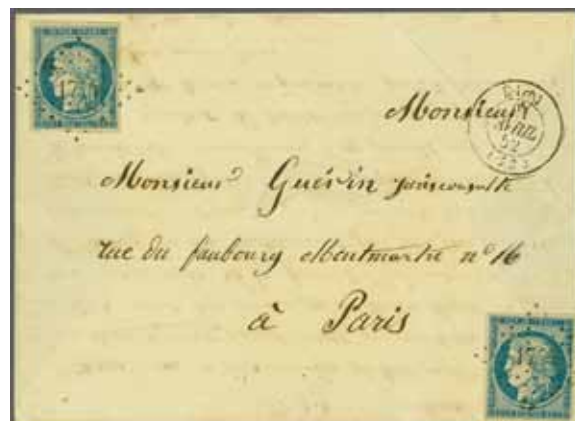 Monsieur
Monsieur Guérin jurisconsulte
rue du faubourg Montmartre n° 16
à Paris
AVRIL
52